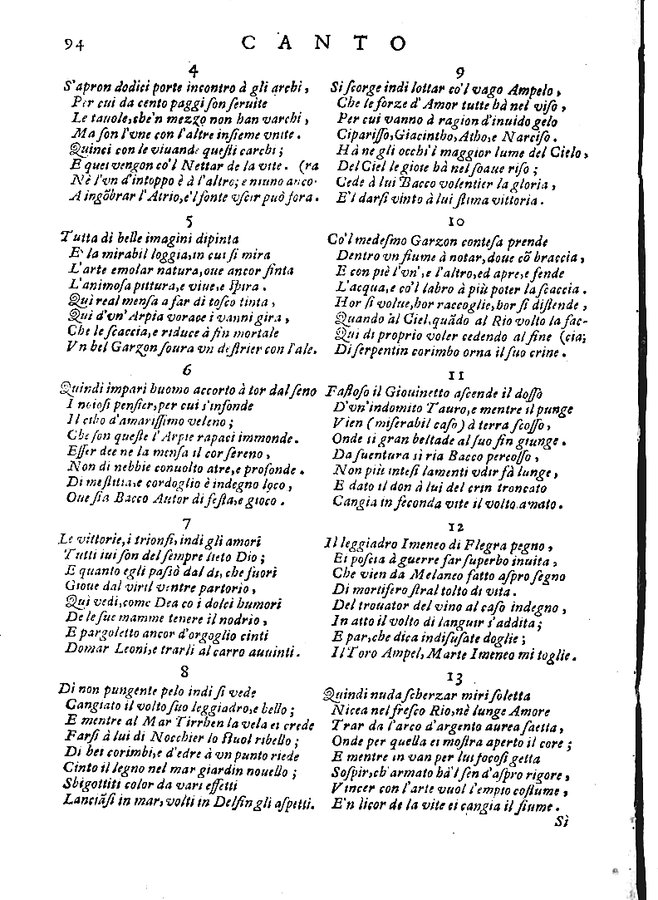 94 CANTO
4
S'apron dodici porte incontro à gli archi,
Per cui da cento paggi son seruite
Le tauole, che'n mezzo non han varchi,
Ma son l'vne con l'altre insieme vnite.
Quinci con le viuande questi carchi;
E quei vengon co'l Nettar de la vite. (ra
Nè l'vn d'intoppo è à l'altro; e niuno anco-
A ingõbrar l'Atrio, e'l fonte vscir può fora.
5
Tutta di belle imagini dipinta
E' la mirabil loggia, in cui si mira
L'arte emolar natura, oue ancor finta
L'animosa pittura, e viue, e spira.
Quì real mensa a far di tosco tinta,
Quì d'vn' Arpia vorace i vanni gira,
Che le scaccia, e riduce à fin mortale
Vn bel Garzon soura vn destrier con l'ale.
6
Quindi impari huomo accorto à tor dal seno
I noiosi pensier, per cui s'infonde
Il cibo d'amarissimo veleno;
Che son queste l'Arpie rapaci immonde.
Esser dee ne la mensa il cor sereno,
Non di nebbie conuolto atre, e profonde.
Di mestitia, e cordoglio è indegno loco,
Oue sia Bacco Autor di festa, e gioco.
7
Le vittorie, i trionfi, indi gli amori
Tutti iui son del sempre lieto Dio;
E quanto egli passò dal dì, che fuori
Gioue dal viril ventre partorio,
Quì vedi, come Dea co i dolci humori
De le sue mamme tenere il nodrio,
E pargoletto ancor d'orgoglio cinti
Domar Leoni, e trarli al carro auuinti.
8
Di non pungente pelo indi si vede
Cangiato il volto suo leggiadro, e bello;
E mentre al Mar Tirrhen la vela ei crede
Farsi à lui di Nocchier lo stuol ribello;
Di bei corimbi, e d'edre à vn punto riede
Cinto il legno nel mar giardin nouello;
Sbigottiti color da vari effetti
Lanciãsi in mar, volti in Delfin gli aspetti.
9
Si scorge indi lottar co'l vago Ampelo,
Che le forze d'Amor tutte hà nel viso,
Per cui vanno à ragion d'inuido gelo
Ciparisso, Giacintho, Atho, e Narciso.
Hà ne gli occhi'l maggior lume del Cielo,
Del Ciel le gioie hà nel soaue riso;
Cede à lui Bacco volentier la gloria,
E'l darsi vinto à lui stima vittoria.
10
Co'l medesmo Garzon contesa prende
Dentro vn fiume à notar, doue cõ braccia,
E con piè l'vn', e l'altro, ed apre, e fende
L'acqua, e co'l labro à più poter la scaccia.
Hor si volue, hor raccoglie, hor si distende,
Quando al Ciel, quãdo al Rio volto la fac-
Qui di proprio voler cedendo al fine (cia;
Di serpentin corimbo orna il suo crine.
11
Fastoso il Giouinetto ascende il dosso
D'vn'indomito Tauro, e mentre il punge
Vien (miserabil caso) à terra scosso,
Onde si gran beltade al suo fin giunge.
Da suentura sì ria Bacco percosso,
Non più intesi lamenti vdir fà lunge,
E dato il don à lui del crin troncato
Cangia in feconda vite il volto amato.
12
Il leggiadro Imeneo di Flegra pegno,
Ei poscia à guerre far superbo inuita,
Che vien da Melaneo fatto aspro segno
Di mortifero stral tolto di vita.
Del trouator del vino al caso indegno,
In atto il volto di languir s'addita;
E par, che dica indisusate doglie;
Il Toro Ampel, Marte Imeneo mi toglie.
13
Quindi nuda scherzar miri soletta
Nicea nel fresco Rio, nè lunge Amore
Trar da l'arco d'argento aurea saetta,
Onde per quella ei mostra aperto il core;
E mentre in van per lui focosi getta
Sospir, ch'armato hà'l sen d'aspro rigore,
Vincer con l'arte vuol l'empio costume,
E'n licor de la vite ei cangia il fiume.
Sì